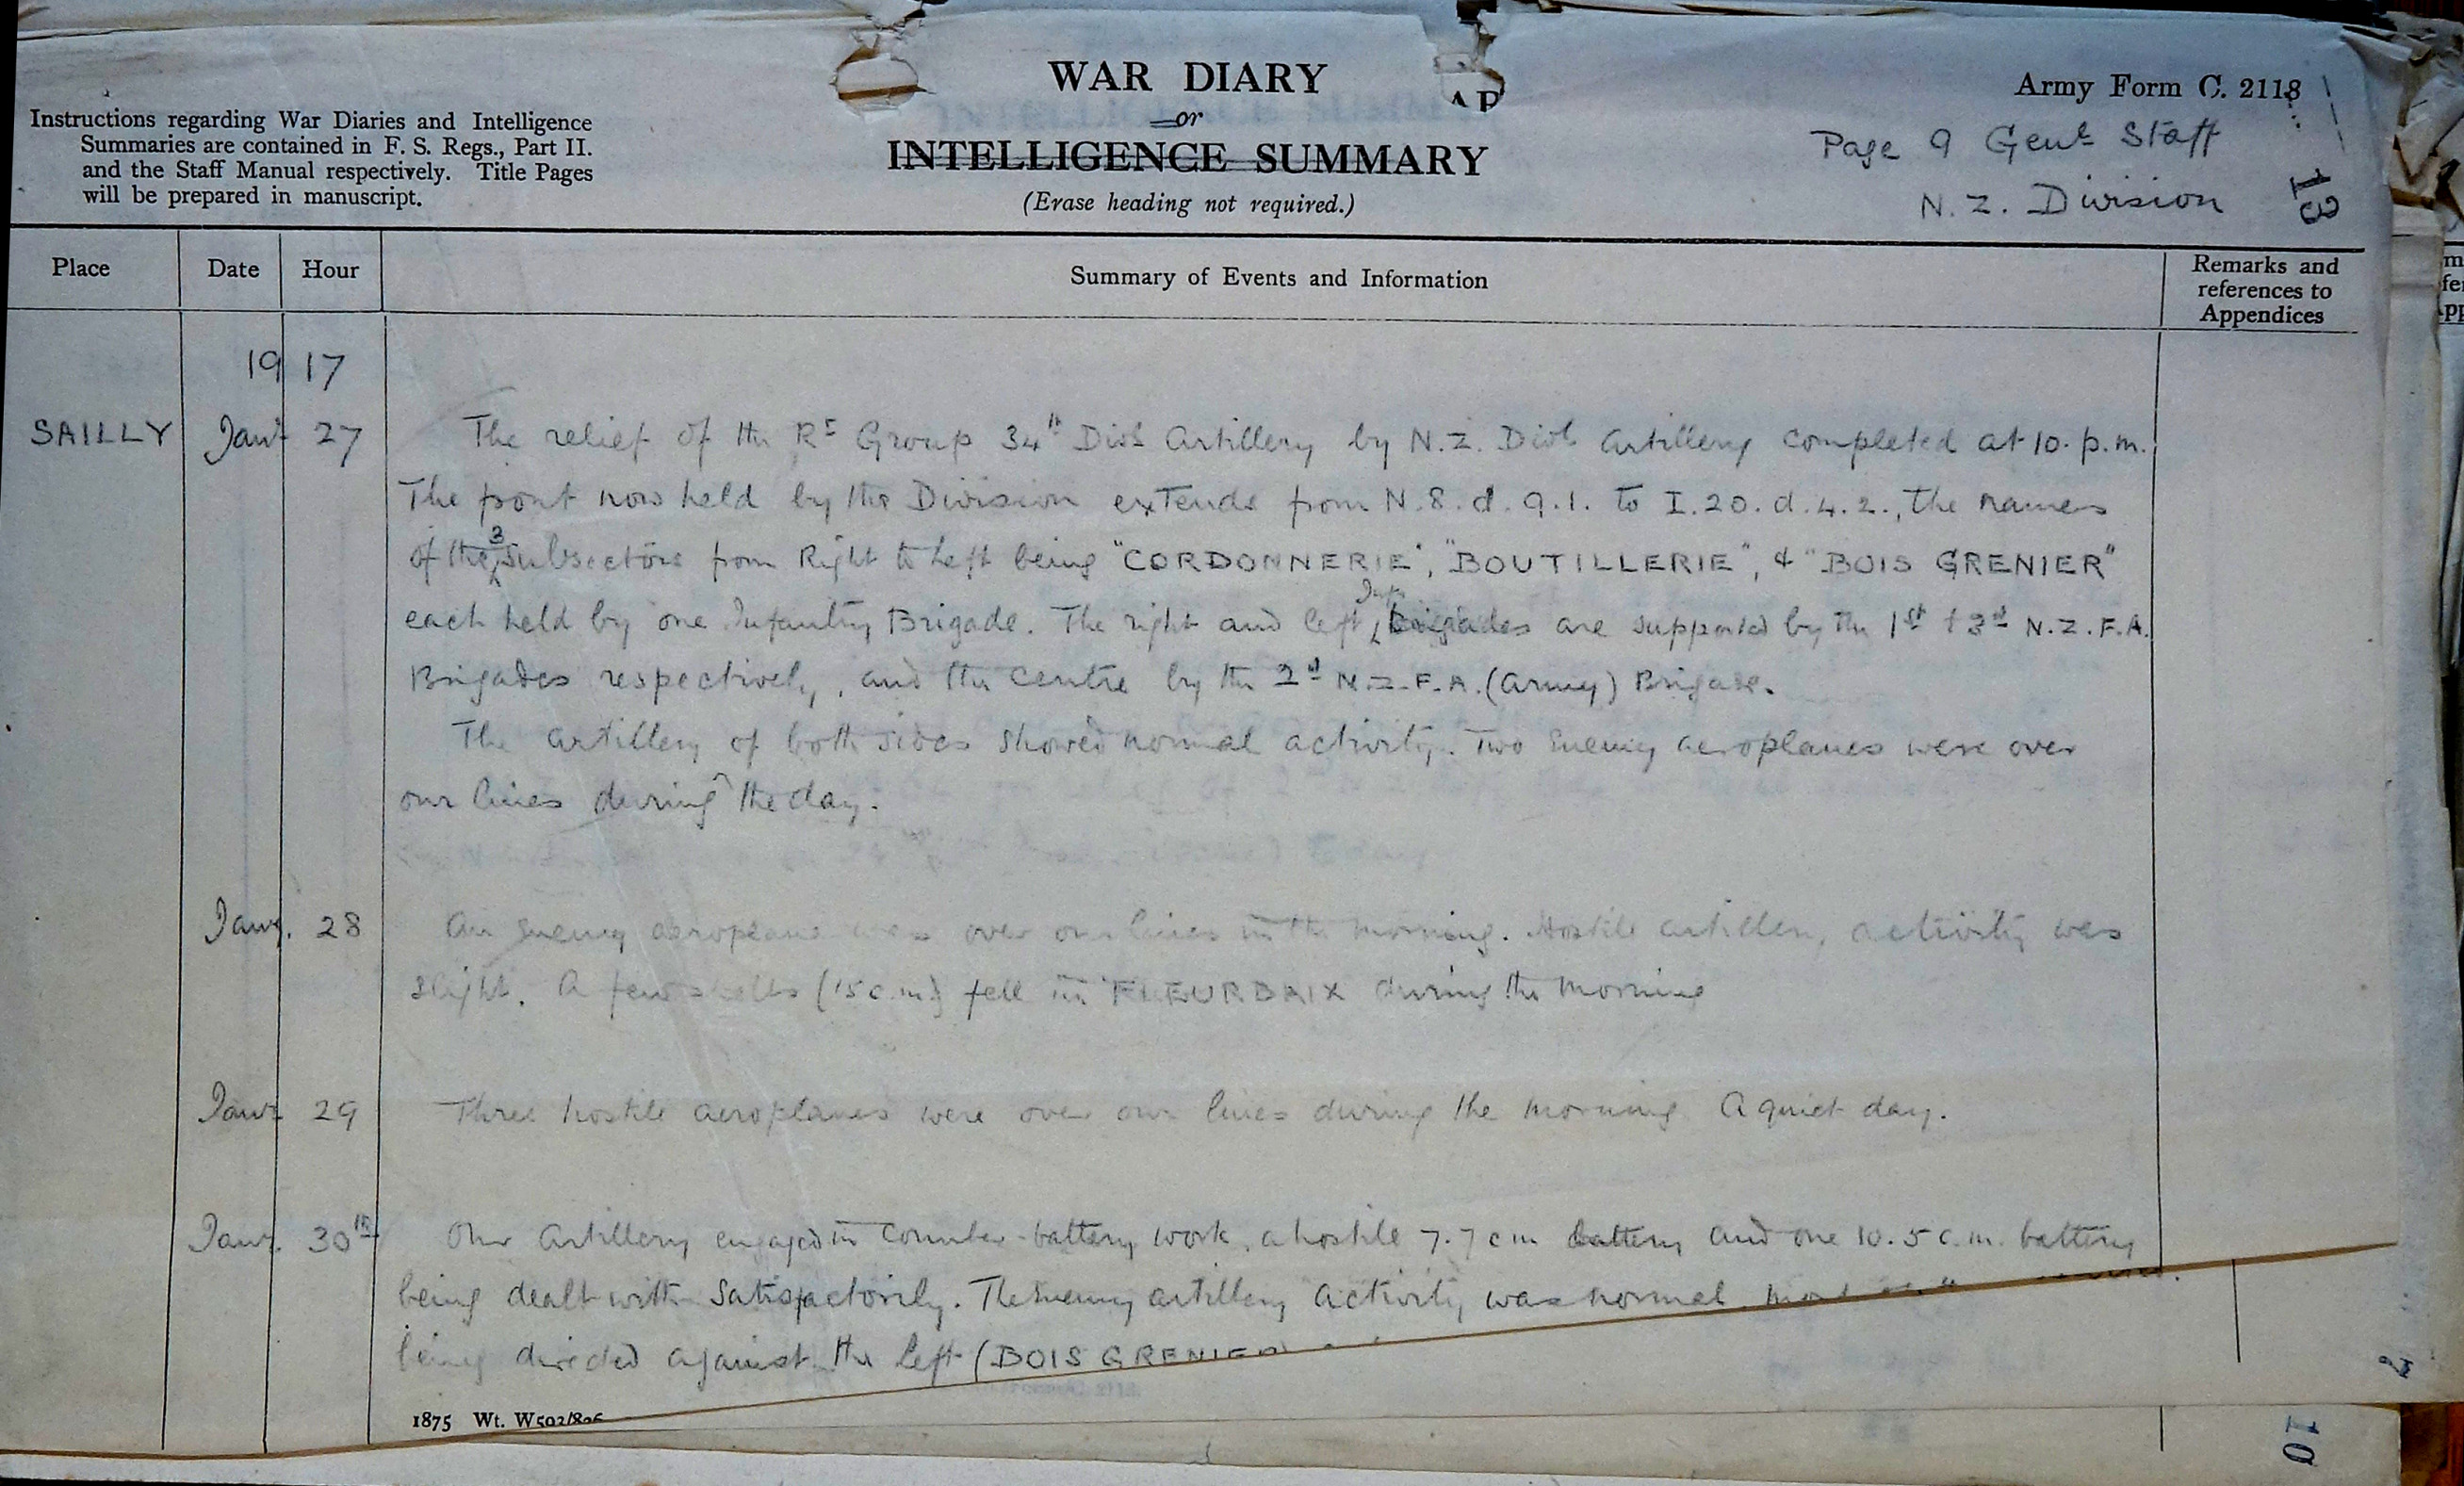 WAR DIARY
or
INTELLIGENCE SUMMARY
(Erase heading not required.)
Instructions regarding War Diaries and Intelligence
Summaries are contained in F. S. Regs., Part II.
and the Staff Manual respectively. Title Pages
will be prepared in manuscript.
Army Form C. 2118
Page 9 Genl Staff
N.Z. Division
13
Place Date Hour Summary of Events and Information
Remarks and
references to
Appendices
1917
SAILLY Jany 27 The relief of the Rt Group 34th Divl Artillery by N.Z. Divl Artillery completed at 10. p.m.
The front now held by the Division extends from N.8.d.9.1. to I.20.d.4.2., the names
of the 3 subsectors from Right to Left being "CORDONNERIE", "BOUTILLERIE", & "BOIS GRENIER"
each held by one Infantry Brigade. The right and left Inf. Brigades are supported by the 1st & 3rd N.Z.F.A.
Brigades respectively, and the centre by the 2d N.Z.F.A. (Army) Brigade.
The artillery of both sides showed normal activity. Two enemy aeroplanes were over
our lines during the day.
Jany. 28 An enemy aeroplane was over our lines in the morning. Hostile artillery activity was
slight. A few shells (15 c.m) fell in FLEURBAIX during the morning
Jany 29 Three hostile aeroplanes were over our lines during the morning A quiet day.
Jany. 30th Our Artillery engaged in counter-battery work, a hostile 7.7 cm battery and one 10.5 c.m. battery
being dealt with satisfactorily. The enemy artillery activity was normal, most
being directed against the left (BOIS GRENIER)
1875 Wt. W593/826
10